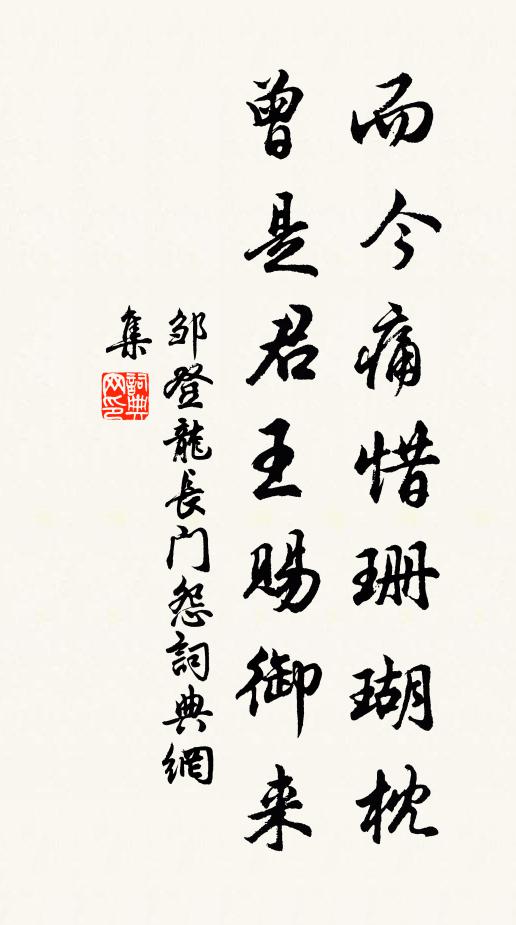 而今痛惜珊瑚枕
曾是君王赐御来
邹登龍長门怨詞典網
集
詞典
网印